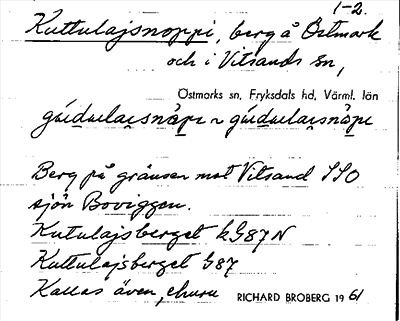 1-2.
Kuttulajsnoppi, berg å Östmark
och i Vitsands sn,
Östmarks sn, Fryksdals hd, Värml. län
Berg på gränsen mot Vitsand SSO
sjön Boviggen.
Kutulajsberget kG87N
Kuttulajsberget G87
Kallas även, ehuru
RICHARD BROBERG 1961